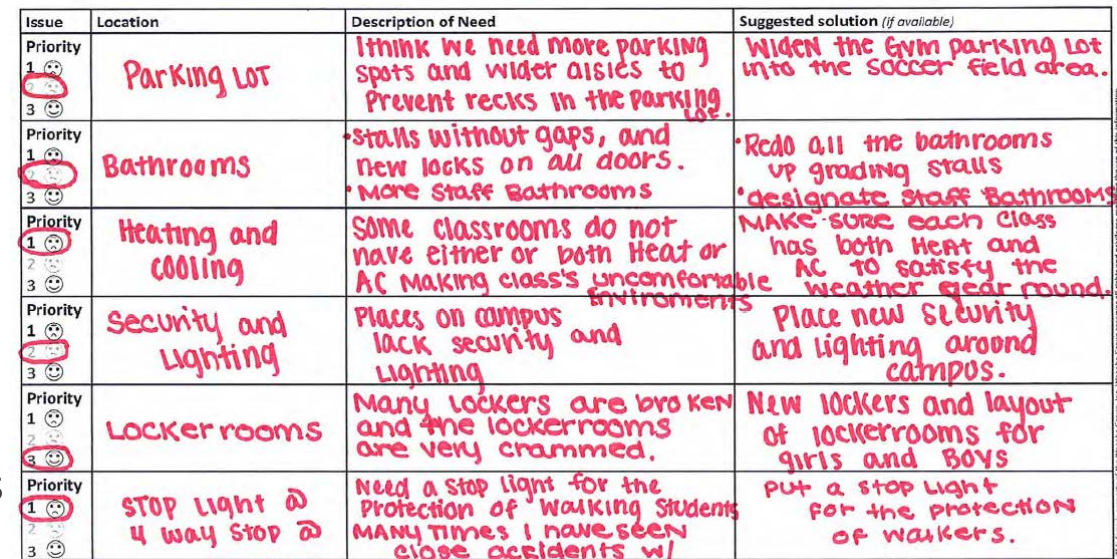 Issue Location Description of Need Suggested solution (if available)
Priority
1
2
3
Parking Lot
I think we need more parking
spots and wider aisles to
Prevent recks in the parking
lot.
Widen the Gym parking Lot
into the soccer field area.
Priority
1
2
3
Bathrooms
•Stalls without gaps, and
new locks on all doors.
•More Staff Bathrooms
•Redo all the bathrooms
up grading stalls
•designate Staff Bathrooms
Priority
1
2
3
Heating and
cooling
Some classrooms do not
have either or both Heat or
AC Making class's uncomfortable
inviroments
Make sure each class
has both Heat and
AC to satisfy the
weather year round.
Priority
1
2
3
Security and
Lighting
Places on campus
lack security and
Lighting
Place new security
and lighting around
campus.
Priority
1
2
3
Locker rooms
Many lockers are broken
and the lockerrooms
are very crammed.
New lockers and layout
of lockerrooms for
girls and Boys
Priority
1
2
3
Stop Light @
4 way stop @
Need a stop light for the
Protection of walking Students
Many times I have seen
close accidents w/
Put a stop Light
for the protection
of walkers.